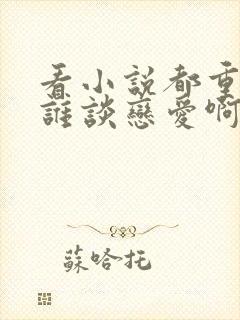 看小說都重
誰談戀愛啊
蘇哈托